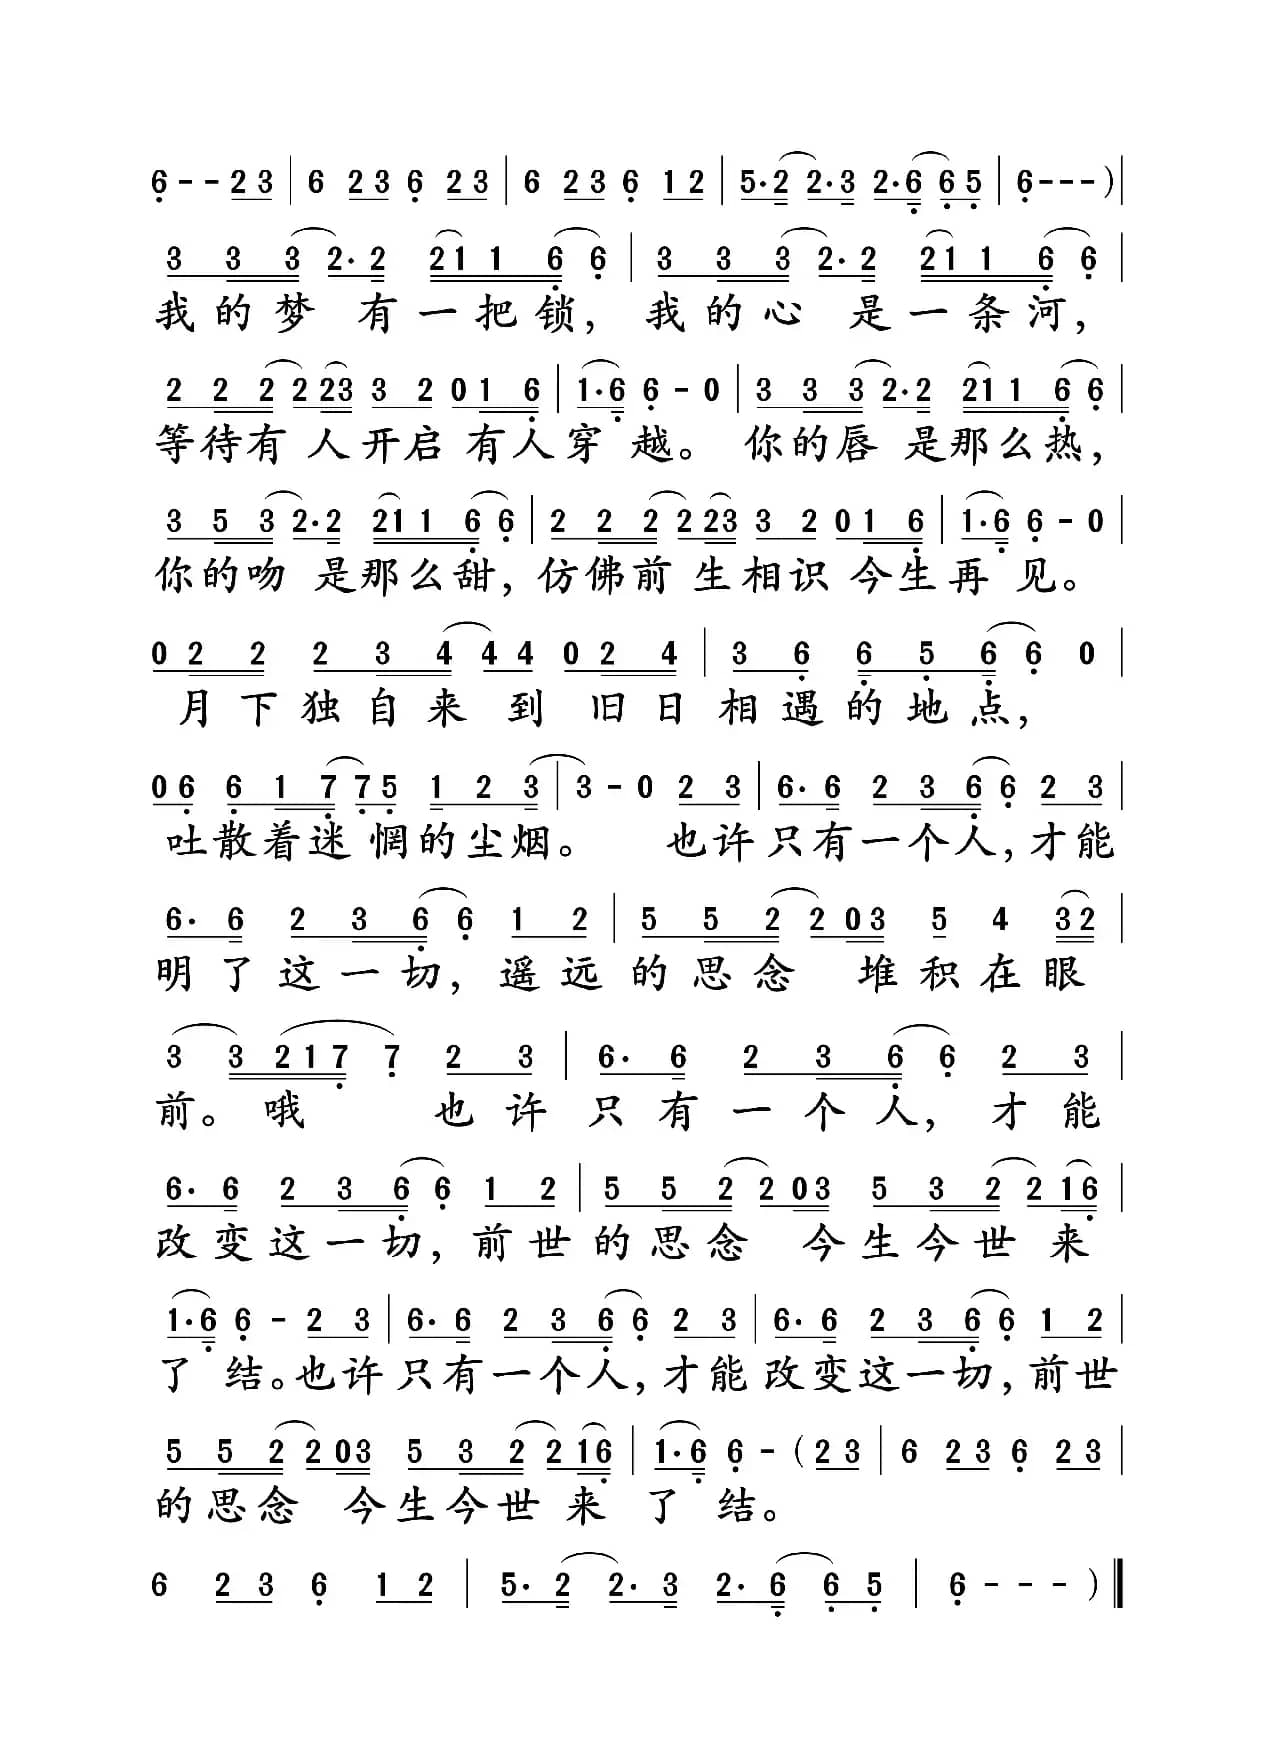 6--23|6 23 6 23|6 23 6 12|5·2 2·3 2·6 65|6---)|
3 3 3 2·2 211 6 6|3 3 3 2·2 211 6 6|
我的梦 有一把锁, 我的心 是一条河,
2 2 2 2 23 3 2 0 1 6|1·6 6-0|3 3 3 2·2 211 6 6|
等待有 人开启 有人穿 越。 你的唇 是那么热,
3 5 3 2·2 211 6 6|2 2 2 2 23 3 2 0 1 6|1·6 6-0|
你的吻 是那么甜, 仿佛前 生相识 今生再 见。
0 2 2 2 3 4 4 4 0 2 4|3 6 6 5 6 6 0|
月下独自来 到 旧日相遇的地点,
0 6 6 1 7 7 5 1 2 3|3-0 2 3|6· 6 2 3 6 6 2 3|
吐散着迷 惘的尘烟。 也许只有一个人, 才能
6· 6 2 3 6 6 1 2|5 5 2 2 03 5 4 32|
明了这一切, 遥远的思念 堆积在眼
3 3 217 7 2 3|6· 6 2 3 6 6 2 3|
前。 哦 也许只有一个人, 才能
6· 6 2 3 6 6 1 2|5 5 2 2 03 5 3 2 2 16|
改变这一切, 前世的思念 今生今世 来
1·6 6-23|6·6 2 3 6 6 2 3|6·6 2 3 6 6 1 2|
了 结。也许只有一个人, 才能改变这一切, 前世
5 5 2 2 03 5 3 2 2 16|1·6 6-(23|6 23 6 23|
的思念 今生今世 来 了 结。
6 23 6 12|5·2 2·3 2·6 65|6---)